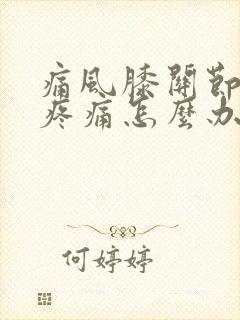 痛風膝關節
疼痛怎麼办
何婷婷